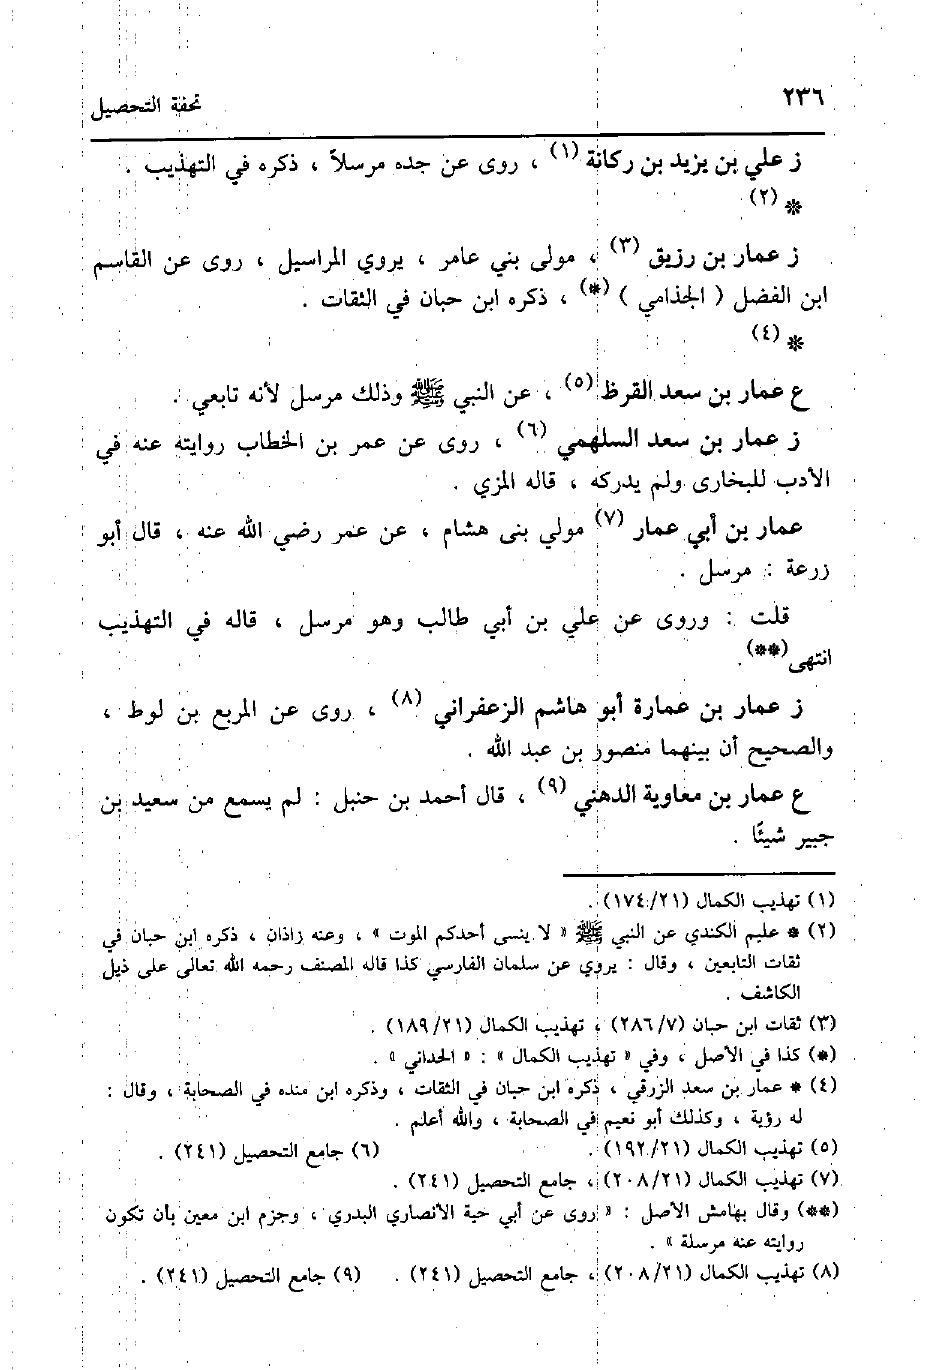 ٢٣٦ تحفة التحصيل
ز علي بن يزيد بن ركانة (١) ، روى عن جده مرسلاً ، ذكره في التهذيب .
* (٢)
ز عمار بن رزيق (٣) ، مولى بني عامر ، يروي المراسيل ، روى عن القاسم
ابن الفضل ( الجذامي ) (*) ، ذكره ابن حبان في الثقات .
* (٤)
ع عمار بن سعد القرظ (٥) ، عن النبي ﷺ وذلك مرسل لأنه تابعي .
ز عمار بن سعد السلهمي (٦) ، روى عن عمر بن الخطاب روايته عنه في
الأدب للبخارى ولم يدركه ، قاله المزي .
عمار بن أبي عمار (٧) مولي بنى هشام ، عن عمر رضي الله عنه ، قال أبو
زرعة : مرسل .
قلت : وروى عن علي بن أبي طالب وهو مرسل ، قاله في التهذيب
انتهى (**) .
ز عمار بن عمارة أبو هاشم الزعفراني (٨) ، روى عن المربع بن لوط ،
والصحيح أن بينهما منصور بن عبد الله .
ع عمار بن معاوية الدهني (٩) ، قال أحمد بن حنبل : لم يسمع من سعيد بن
جبير شيئًا .
(١) تهذيب الكمال (١٧٤/٢١) .
(٢) * عليم الكندي عن النبي ﷺ « لا ينسى أحدكم الموت » ، وعنه زاذان ، ذكره ابن حبان في
ثقات التابعين ، وقال : يروي عن سلمان الفارسي كذا قاله المصنف رحمه الله تعالى على ذيل
الكاشف .
(٣) ثقات ابن حبان (٢٨٦/٧) ، تهذيب الكمال (١٨٩/٢١) .
(*) كذا في الأصل ، وفي « تهذيب الكمال » : « الحداني » .
(٤) * عمار بن سعد الزرقي ، ذكره ابن حبان في الثقات ، وذكره ابن منده في الصحابة ، وقال :
له رؤية ، وكذلك أبو نعيم في الصحابة ، والله أعلم .
(٥) تهذيب الكمال (١٩٢/٢١) . (٦) جامع التحصيل (٢٤١) .
(٧) تهذيب الكمال (٢٠٨/٢١) ، جامع التحصيل (٢٤١) .
(**) وقال بهامش الأصل : « روى عن أبي حية الأنصاري البدري ، وجزم ابن معين بأن تكون
روايته عنه مرسلة » .
(٨) تهذيب الكمال (٢٠٨/٢١) ، جامع التحصيل (٢٤١) . (٩) جامع التحصيل (٢٤١) .